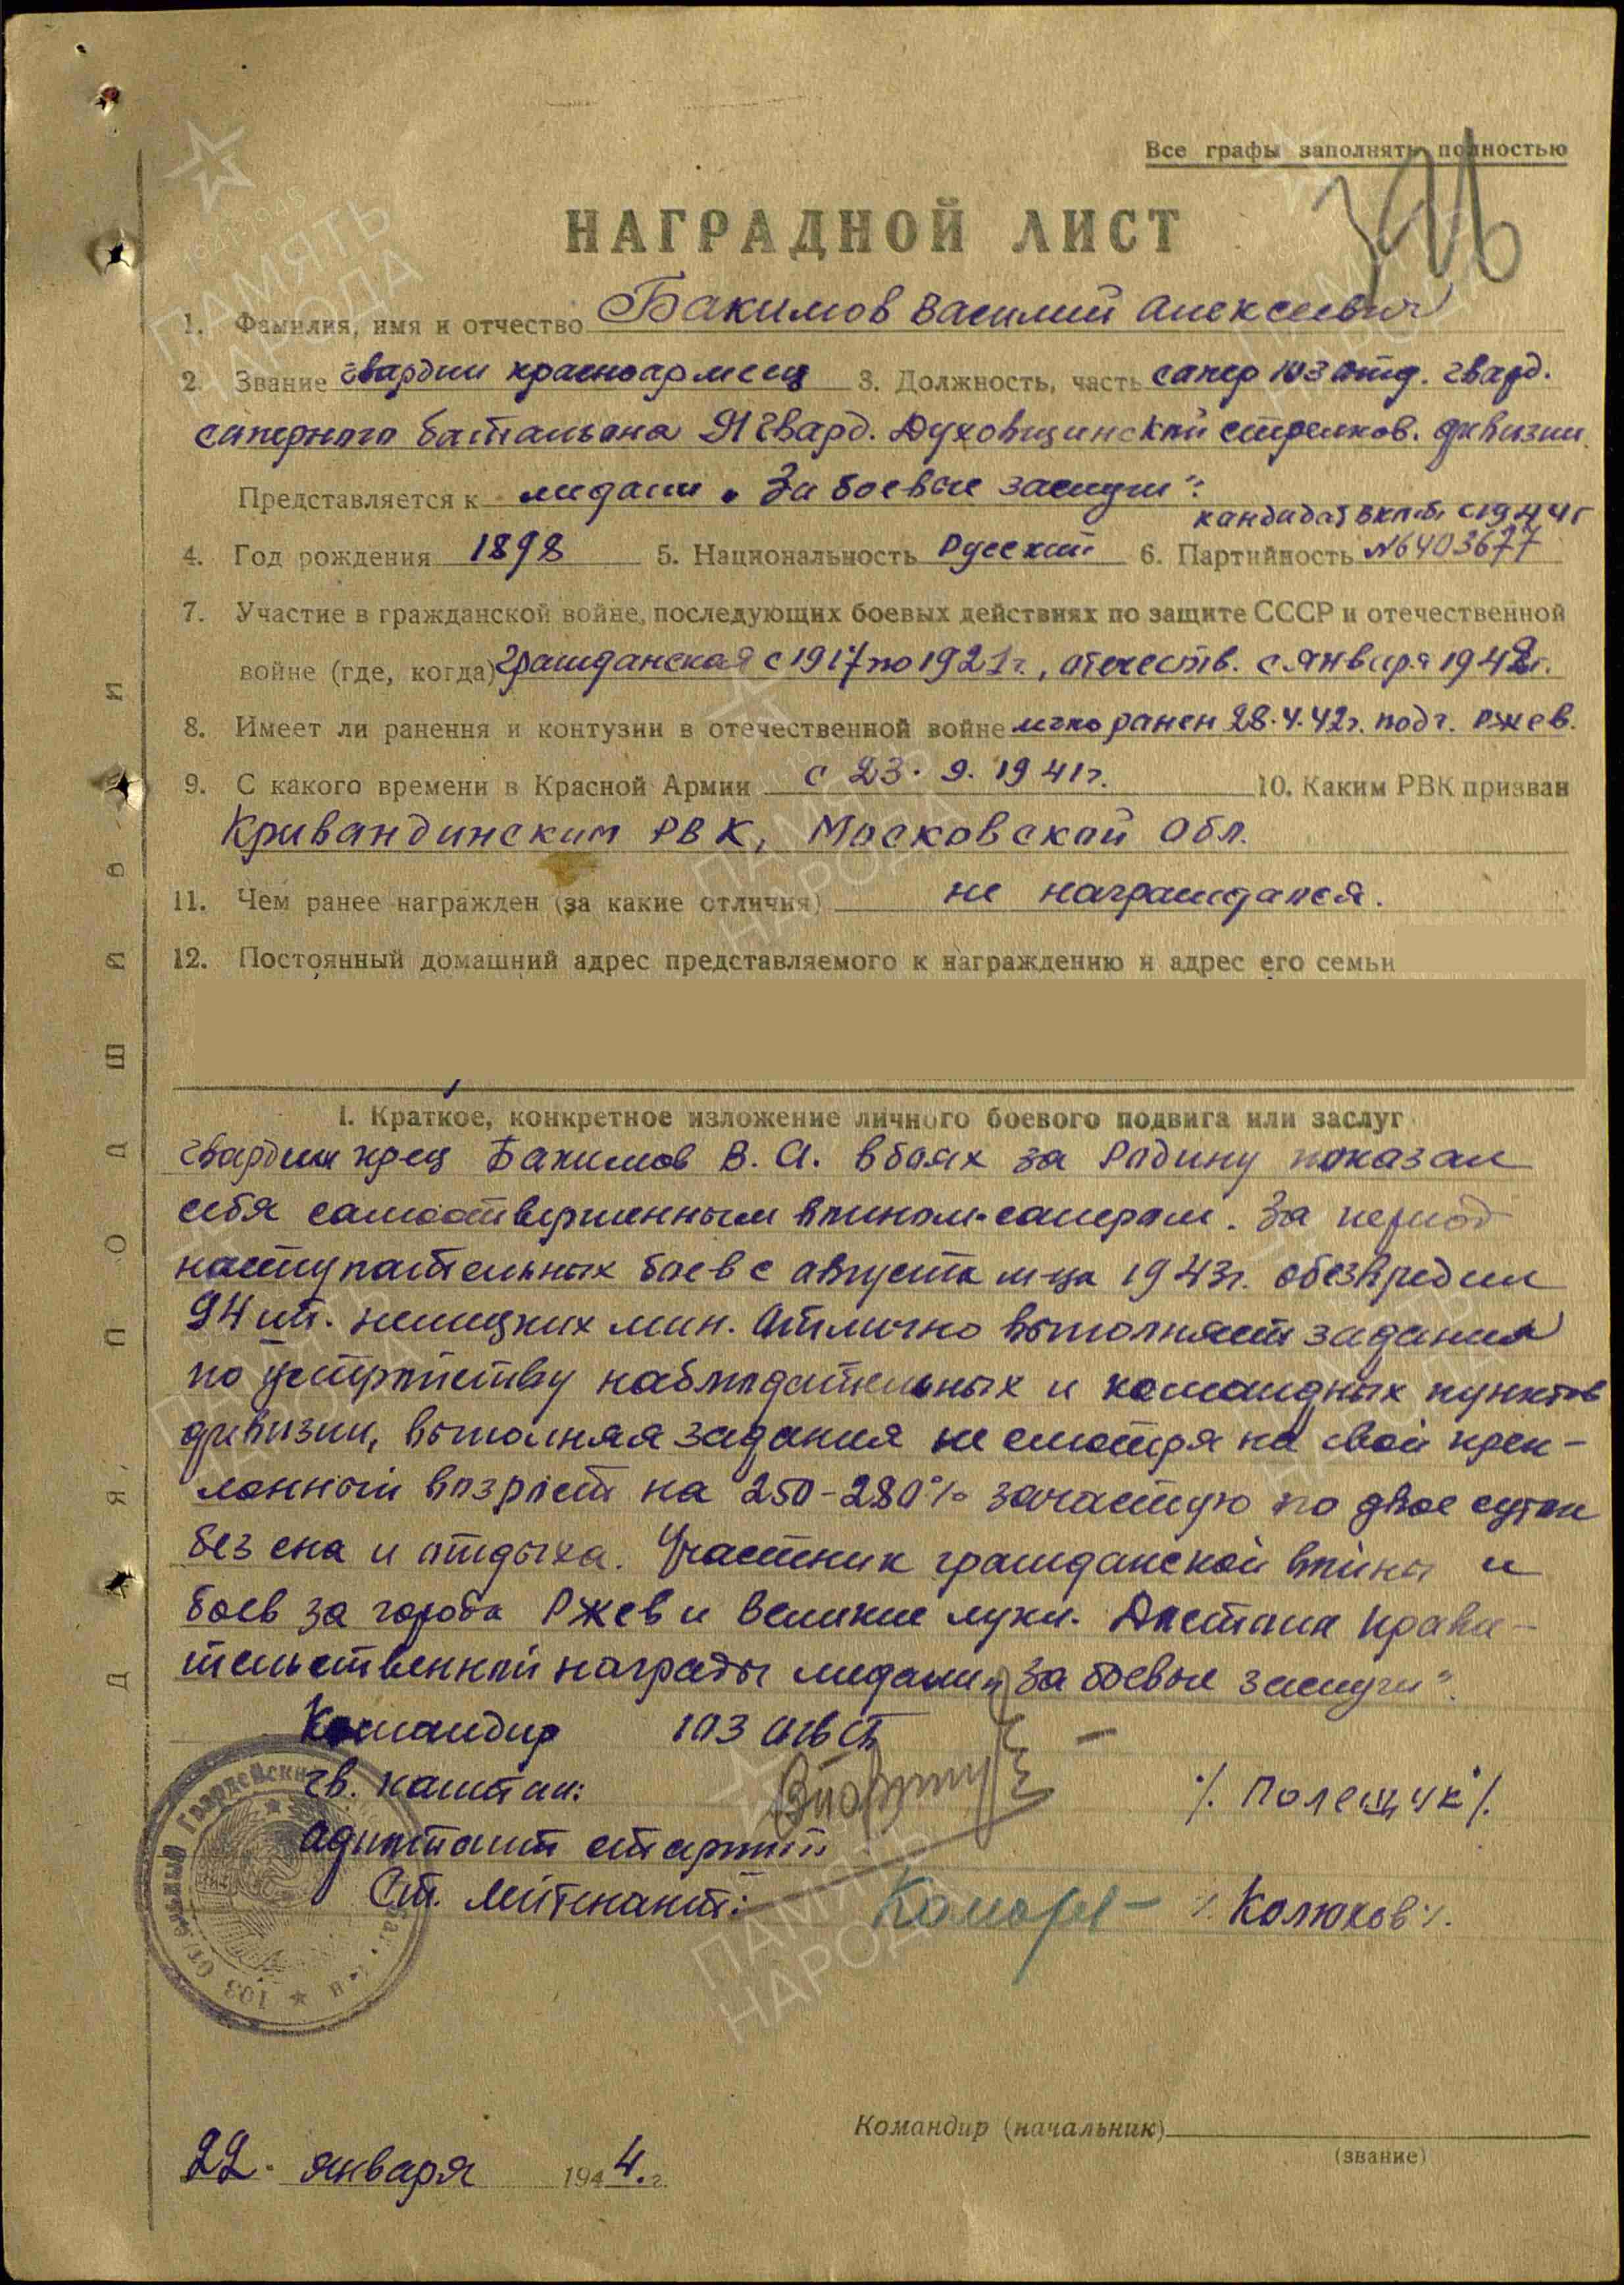 Все графы заполнять полностью
НАГРАДНОЙ ЛИСТ
1. Фамилия, имя и отчество Бакимов Василий Алексеевич
2. Звание гвардии красноармеец 3. Должность, часть сапер 103 отд. гвард.
саперного батальона 91 гвард. Духовщинской стрелков. дивизии.
Представляется к медали „За боевые заслуги".
кандидат ВКП(б) с 1944 г
4. Год рождения 1898 5. Национальность Русский 6. Партийность №6403677
7. Участие в гражданской войне, последующих боевых действиях по защите СССР и отечественной
войне (где, когда) Гражданская с 1917 по 1921г., отечеств. с января 1942г.
8. Имеет ли ранения и контузии в отечественной войне легко ранен 28.4.42г. под г. Ржев.
9. С какого времени в Красной Армии с 23.9.1941г. 10. Каким РВК призван
Кривандинским РВК, Московской Обл.
11. Чем ранее награжден (за какие отличия) не награждался.
12. Постоянный домашний адрес представляемого к награждению и адрес его семьи
I. Краткое, конкретное изложение личного боевого подвига или заслуг
гвардии кр-ец Бакимов В. А. в боях за Родину показал
себя самоотверженным воином-сапером. За период
наступательных боев с августа м-ца 1943г. обезвредил
94 шт. немецких мин. Отлично выполняет задания
по устройству наблюдательных и командных пунктов
дивизии, выполняя задания не смотря на свой прек-
лонный возраст на 250-280% зачастую по двое суток
без сна и отдыха. Участник гражданской войны и
боев за города Ржев и Великие луки. Достоин прави-
тельственной награды медали „За боевые заслуги".
Командир 103 огвсб
гв. капитан: /. Полещук /.
Адъютант старший
Ст. лейтенант: /. Колюхов /.
103 Отдельный Гвардейский
Командир (начальник)
(звание)
22. января 1944.г.
Для подшивки
ПАМЯТЬ НАРОДА
1941-1945